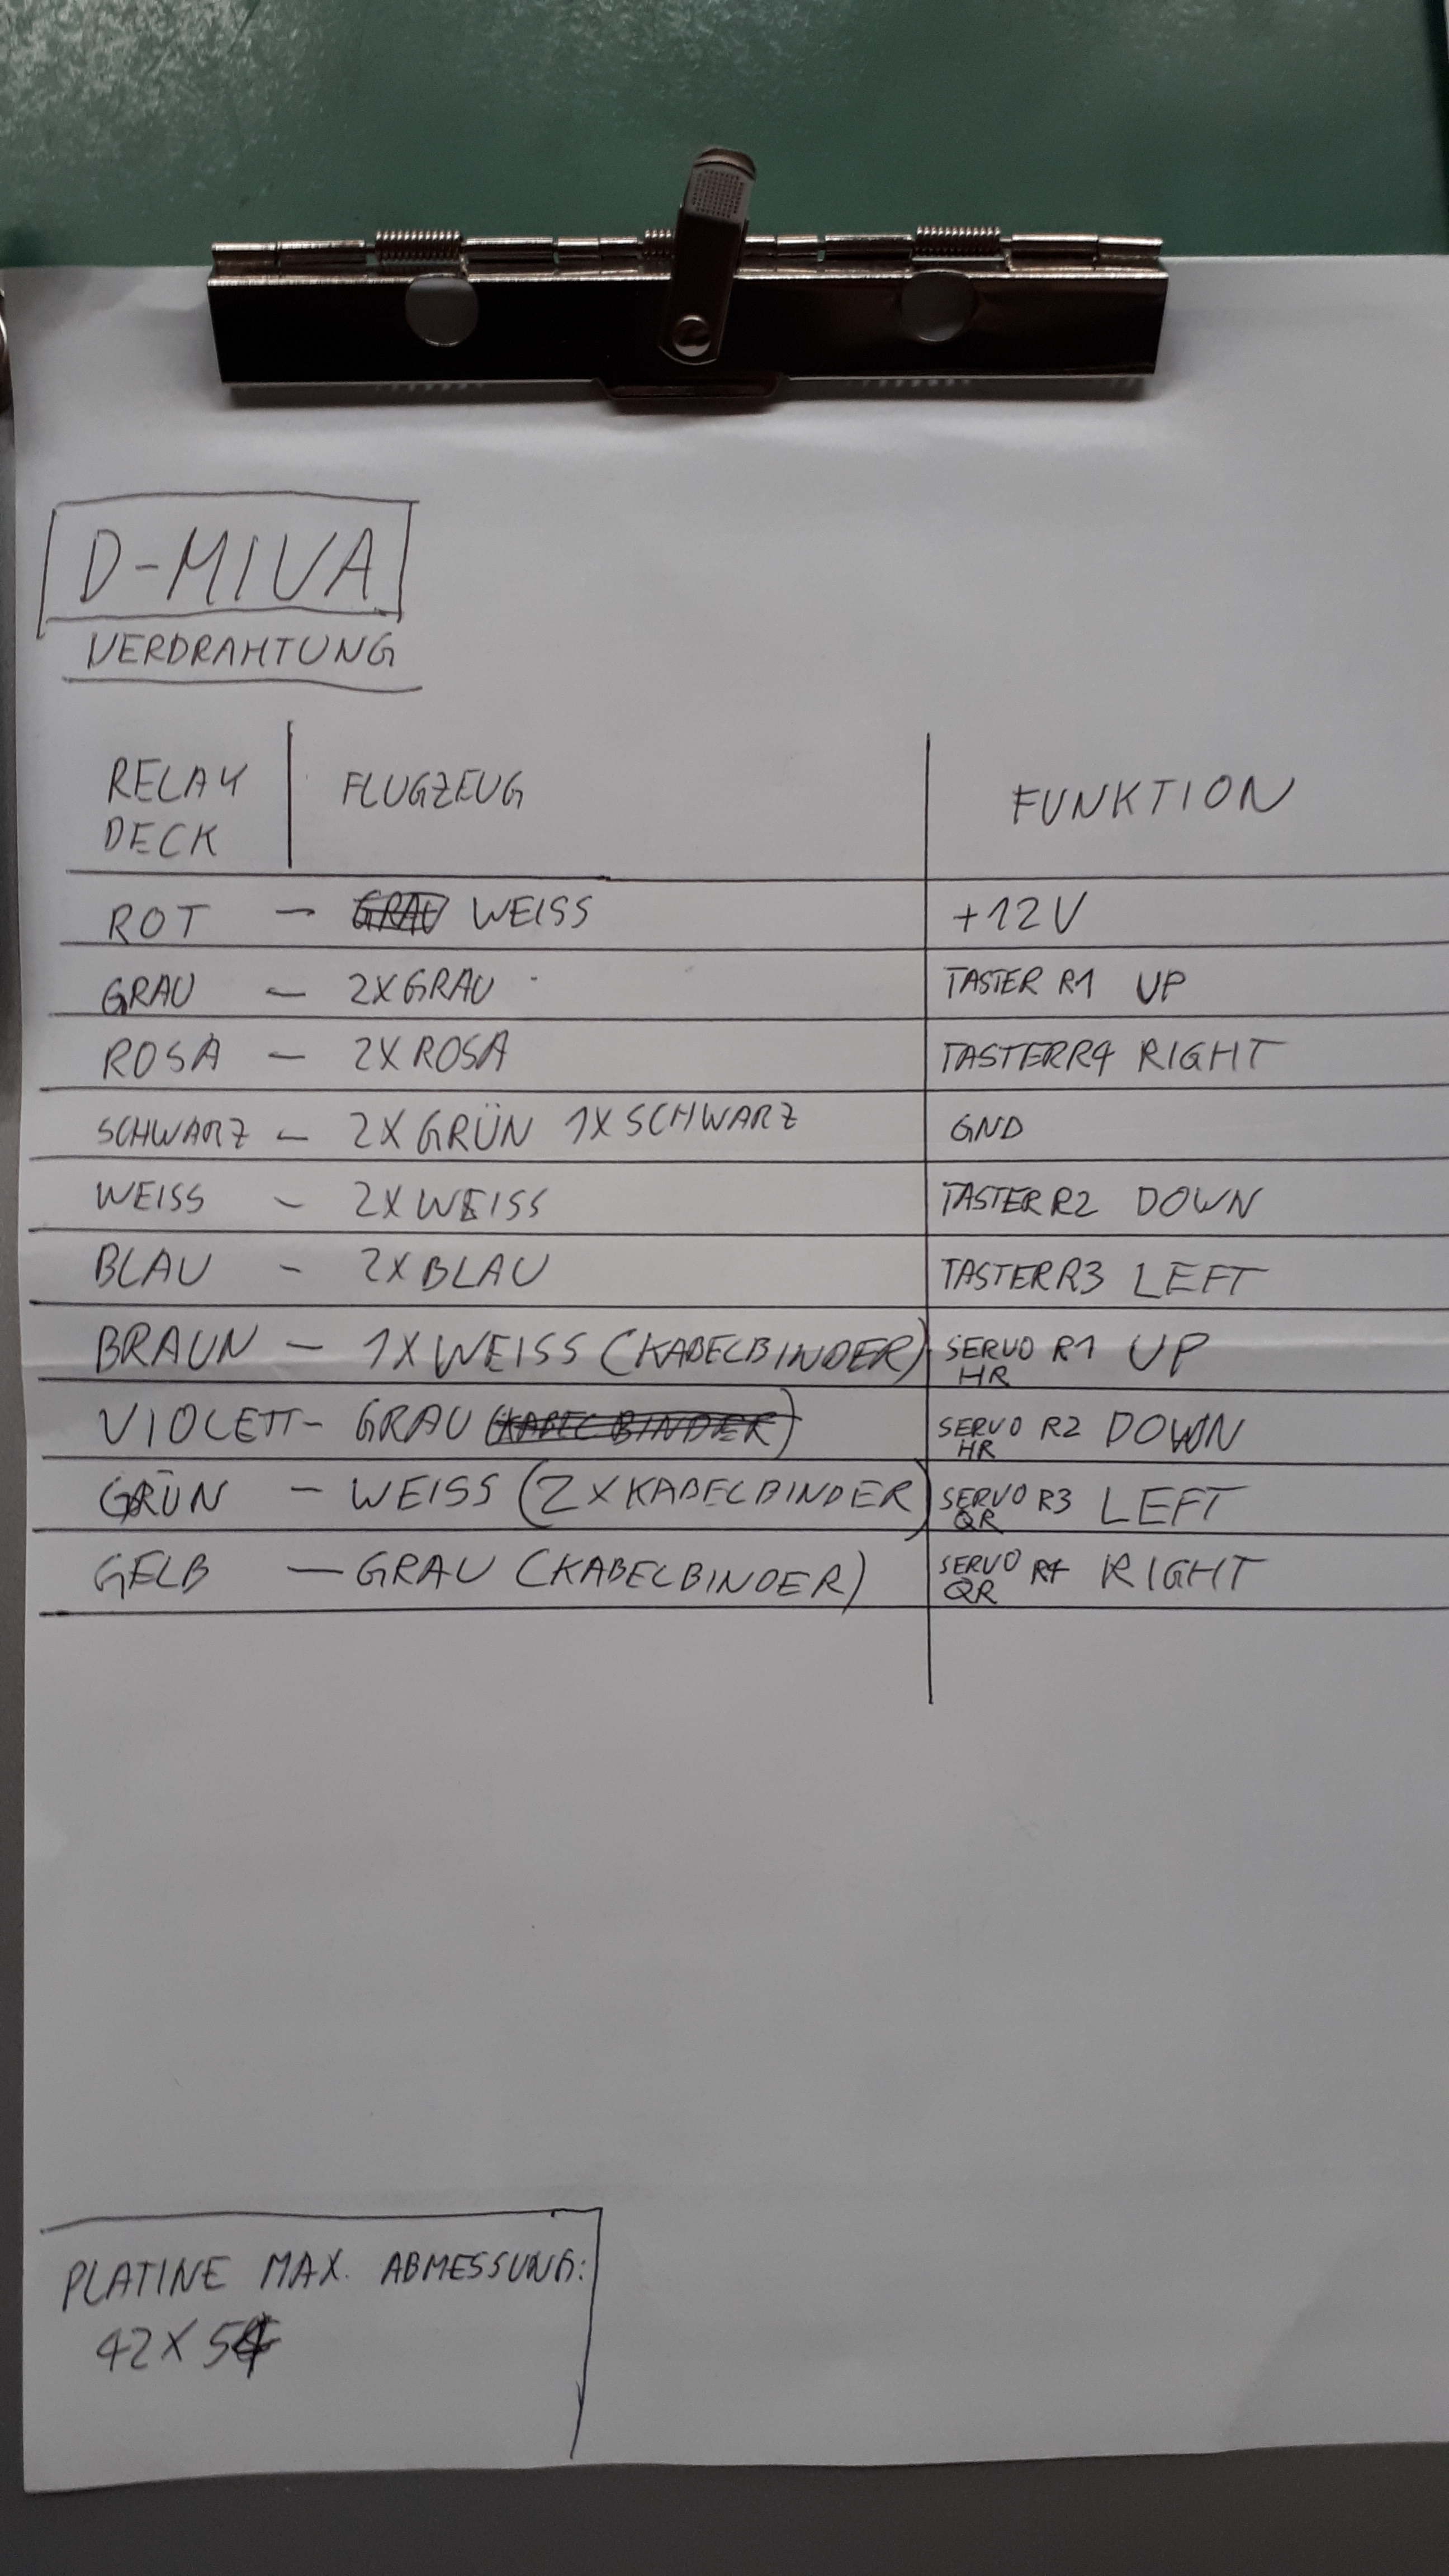 D-MIVA
VERDRAHTUNG
RELAY DECK FLUGZEUG FUNKTION
ROT - GRAU WEISS +12V
GRAU - 2XGRAU TASTER R1 UP
ROSA - 2XROSA TASTER R4 RIGHT
SCHWARZ - 2XGRÜN 1XSCHWARZ GND
WEISS - 2XWEISS TASTER R2 DOWN
BLAU - 2XBLAU TASTER R3 LEFT
BRAUN - 1XWEISS (KABELBINDER) SERVO HR R1 UP
VIOLETT - GRAU (KABELBINDER) SERVO HR R2 DOWN
GRÜN - WEISS (2XKABELBINDER) SERVO QR R3 LEFT
GELB - GRAU (KABELBINDER) SERVO QR R4 RIGHT
PLATINE MAX. ABMESSUNG:
42X54